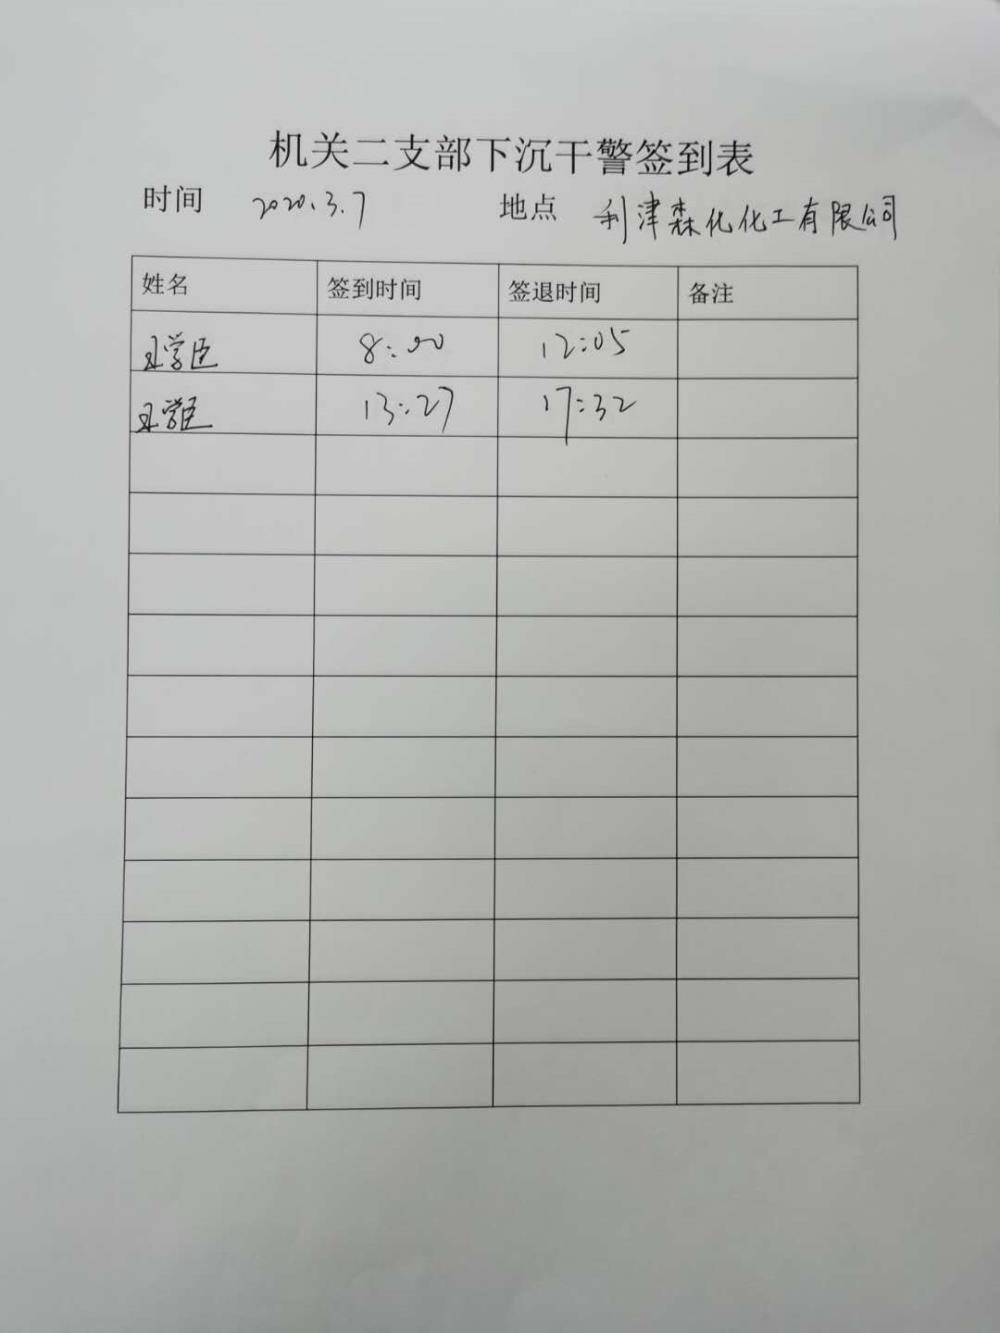 机关二支部下沉干警签到表
时间 2020.3.7 地点 利津森化化工有限公司
姓名 签到时间 签退时间 备注
王学臣 8:00 12:05
王学臣 13:27 17:32